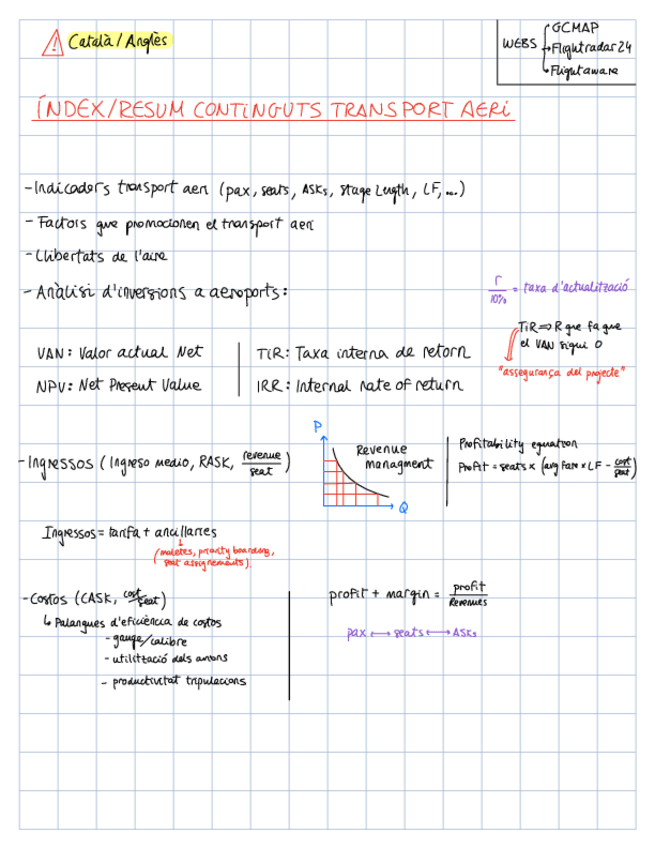 Català / Anglès
WEBS
GCMAP
Flightradar24
Flightaware
ÍNDEX/RESUM CONTINGUTS TRANSPORT AERI
- Indicadors transport aeri (pax, seats, ASKs, Stage Length, LF,...)
- Factors que promocionen el transport aeri
- Llibertats de l'aire
- Anàlisi d'inversions a aeroports:
r/10% = taxa d'actualització
VAN: Valor actual Net
NPV: Net Present Value
TIR: Taxa interna de retorn
IRR: Internal rate of return
TIR => R que fa que
el VAN sigui 0
"assegurança del projecte"
- Ingressos (Ingreso medio, RASK, revenue/seat)
P
Revenue
managment
Q
Profitability equation
Profit = seats x (avg Fare x LF - cost/seat)
Ingressos = tarifa + ancillaries
(maletes, priority boarding,
seat assignements).
- Costos (CASK, cost/seat)
Palangues d'eficiència de costos
- gauge/calibre
- utilització dels avions
- productivitat tripulacions
profit + margin = profit/Revenues
pax ↔ seats ↔ ASKs